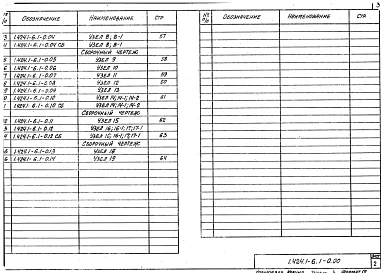 3
№ п/п ОБОЗНАЧЕНИЕ НАИМЕНОВАНИЕ СТР
3 1.424.1-6.1-0.04 УЗЕЛ 8; 8-1 57
4 1.424.1-6.1-0.04 СБ УЗЕЛ 8; 8-1
СБОРОЧНЫЙ ЧЕРТЕЖ
5 1.424.1-6.1-0.05 УЗЕЛ 9 58
6 1.424.1-6.1-0.06 УЗЕЛ 10
7 1.424.1-6.1-0.07 УЗЕЛ 11 59
8 1.424.1-6.1-0.08 УЗЕЛ 12 60
9 1.424.1-6.1-0.09 УЗЕЛ 13
0 1.424.1-6.1-0.10 УЗЕЛ 14; 14-1; 14-2 61
1 1.424.1-6.1-0.10 СБ УЗЕЛ 14; 14-1; 14-2
СБОРОЧНЫЙ ЧЕРТЕЖ
12 1.424.1-6.1-0.11 УЗЕЛ 15 62
3 1.424.1-6.1-0.12 УЗЕЛ 16; 16-1; 17; 17-1
4 1.424.1-6.1-0.12 СБ УЗЕЛ 16; 16-1; 17; 17-1 63
СБОРОЧНЫЙ ЧЕРТЕЖ
1.424.1-6.1-0.13 УЗЕЛ 18
6 1.424.1-6.1-0.14 УЗЕЛ 19 64
№ п/п ОБОЗНАЧЕНИЕ НАИМЕНОВАНИЕ СТР
1.424.1-6.1-0.00
2